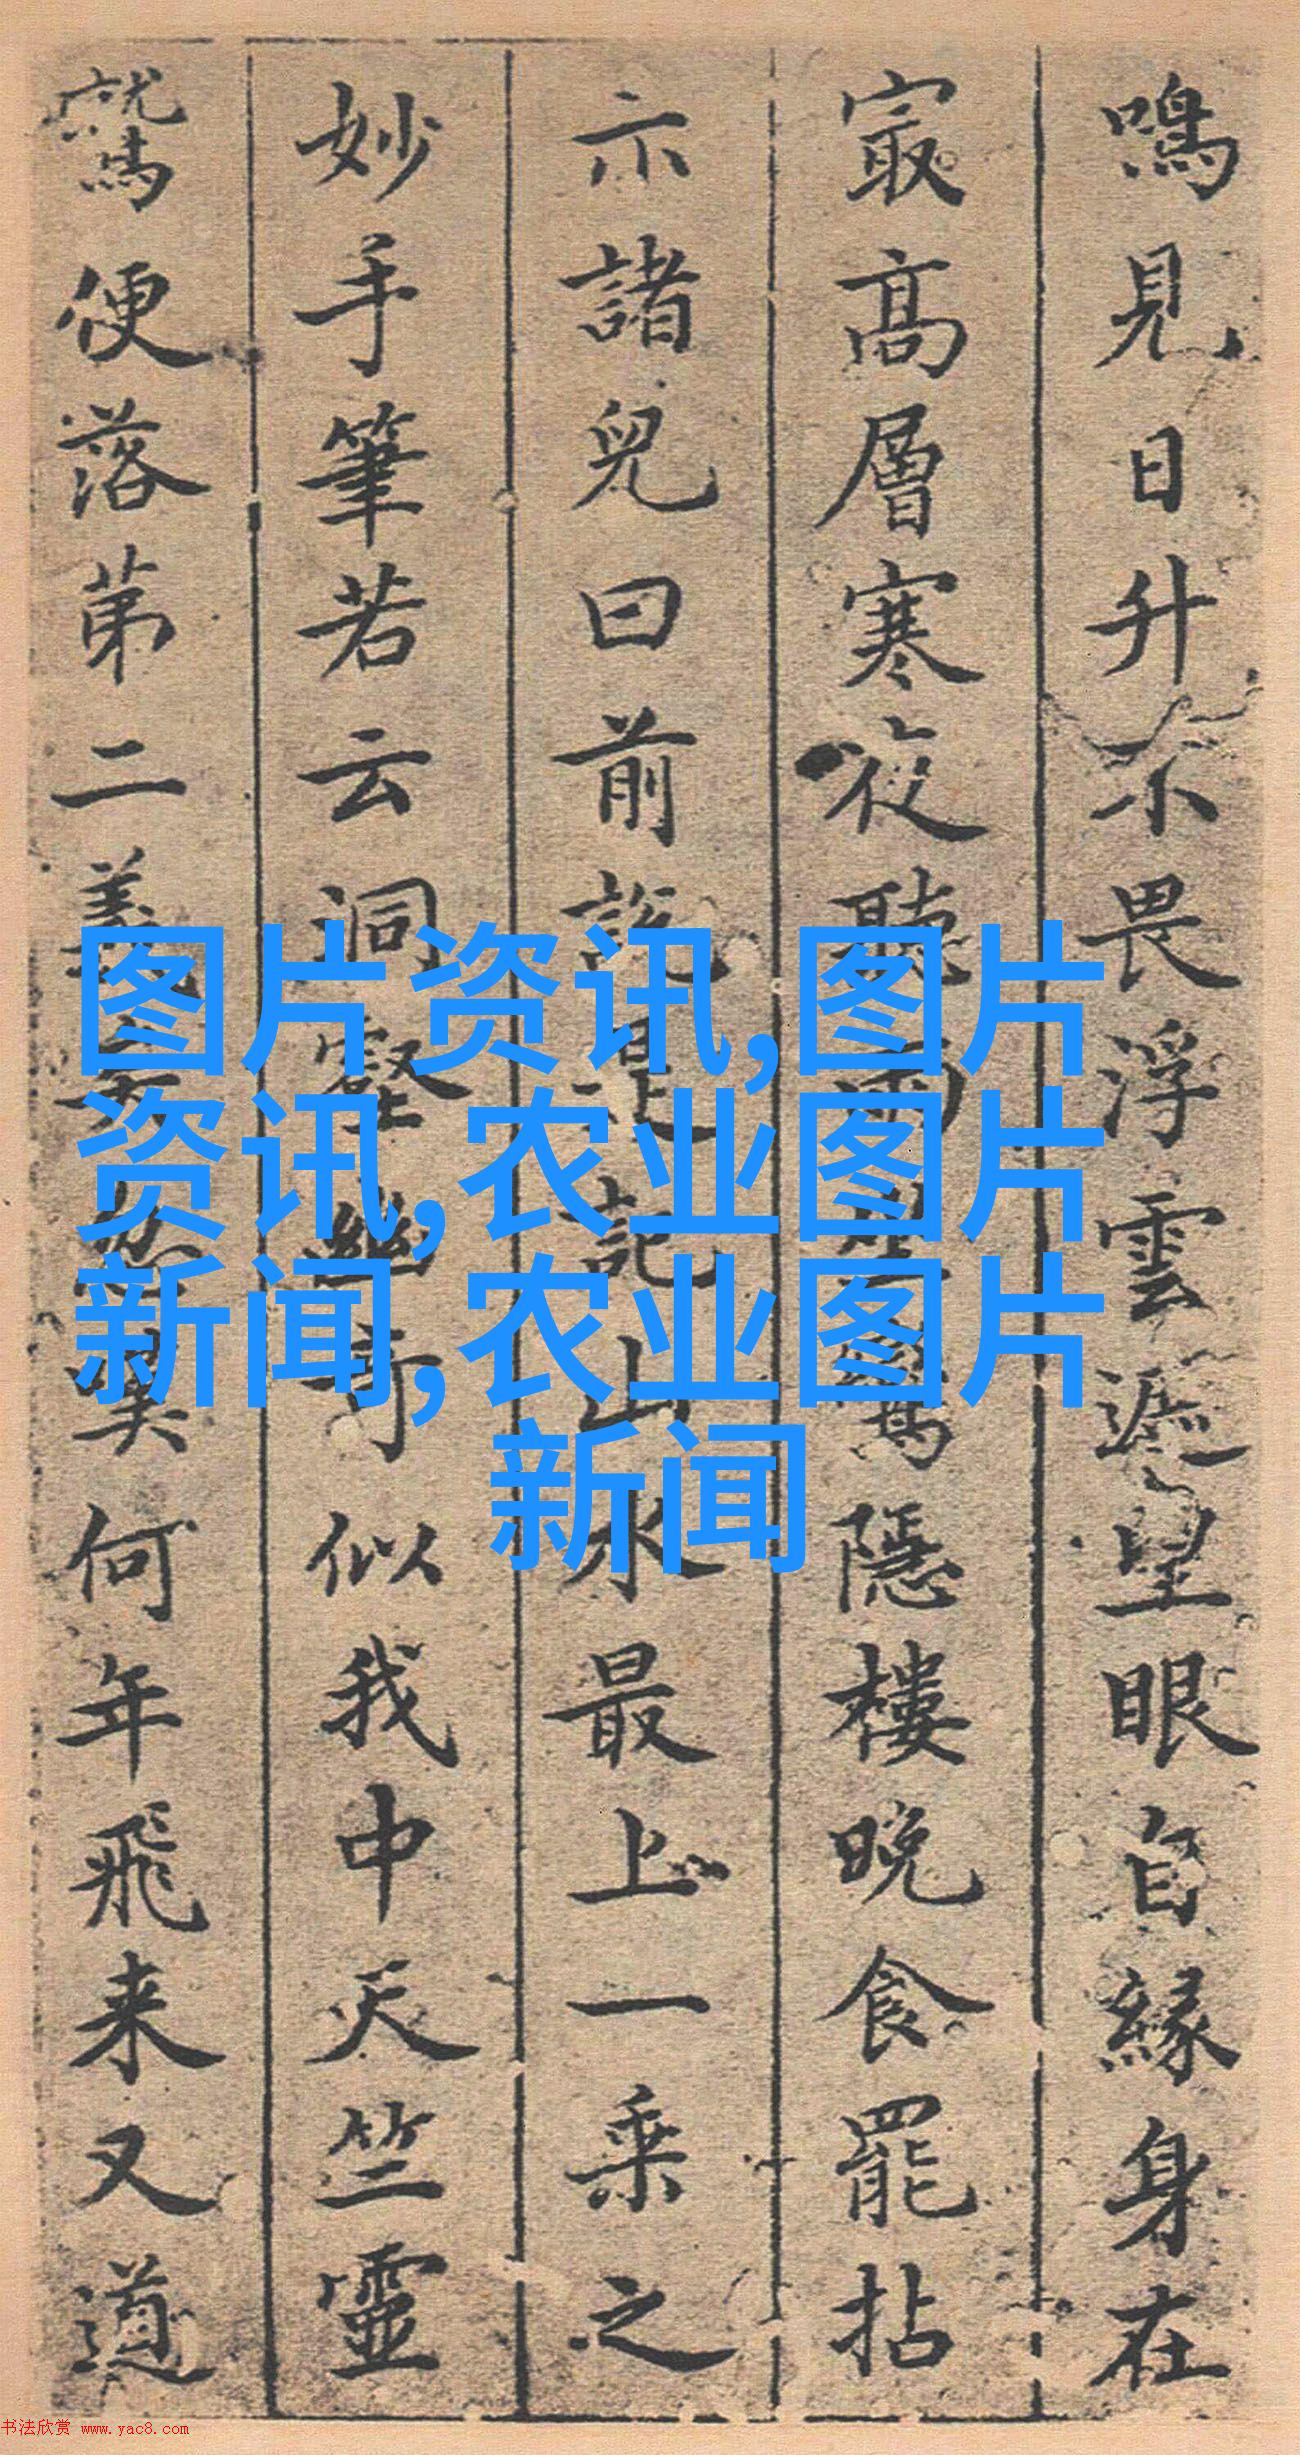 鳴見日升不畏浮雲遮望眼自緣身在
寂高層寒夜聽雨隱樓晚食罷拈
示諸兒曰前說是記山水最上一乘之
妙手筆若云洞壑幽奇似我中天竺靈
鷲便落第二義矣咲何年飛来又道
图片资讯,图片
资讯,农业图片
新闻,农业图片
新闻
书法欣赏 www.yac8.com